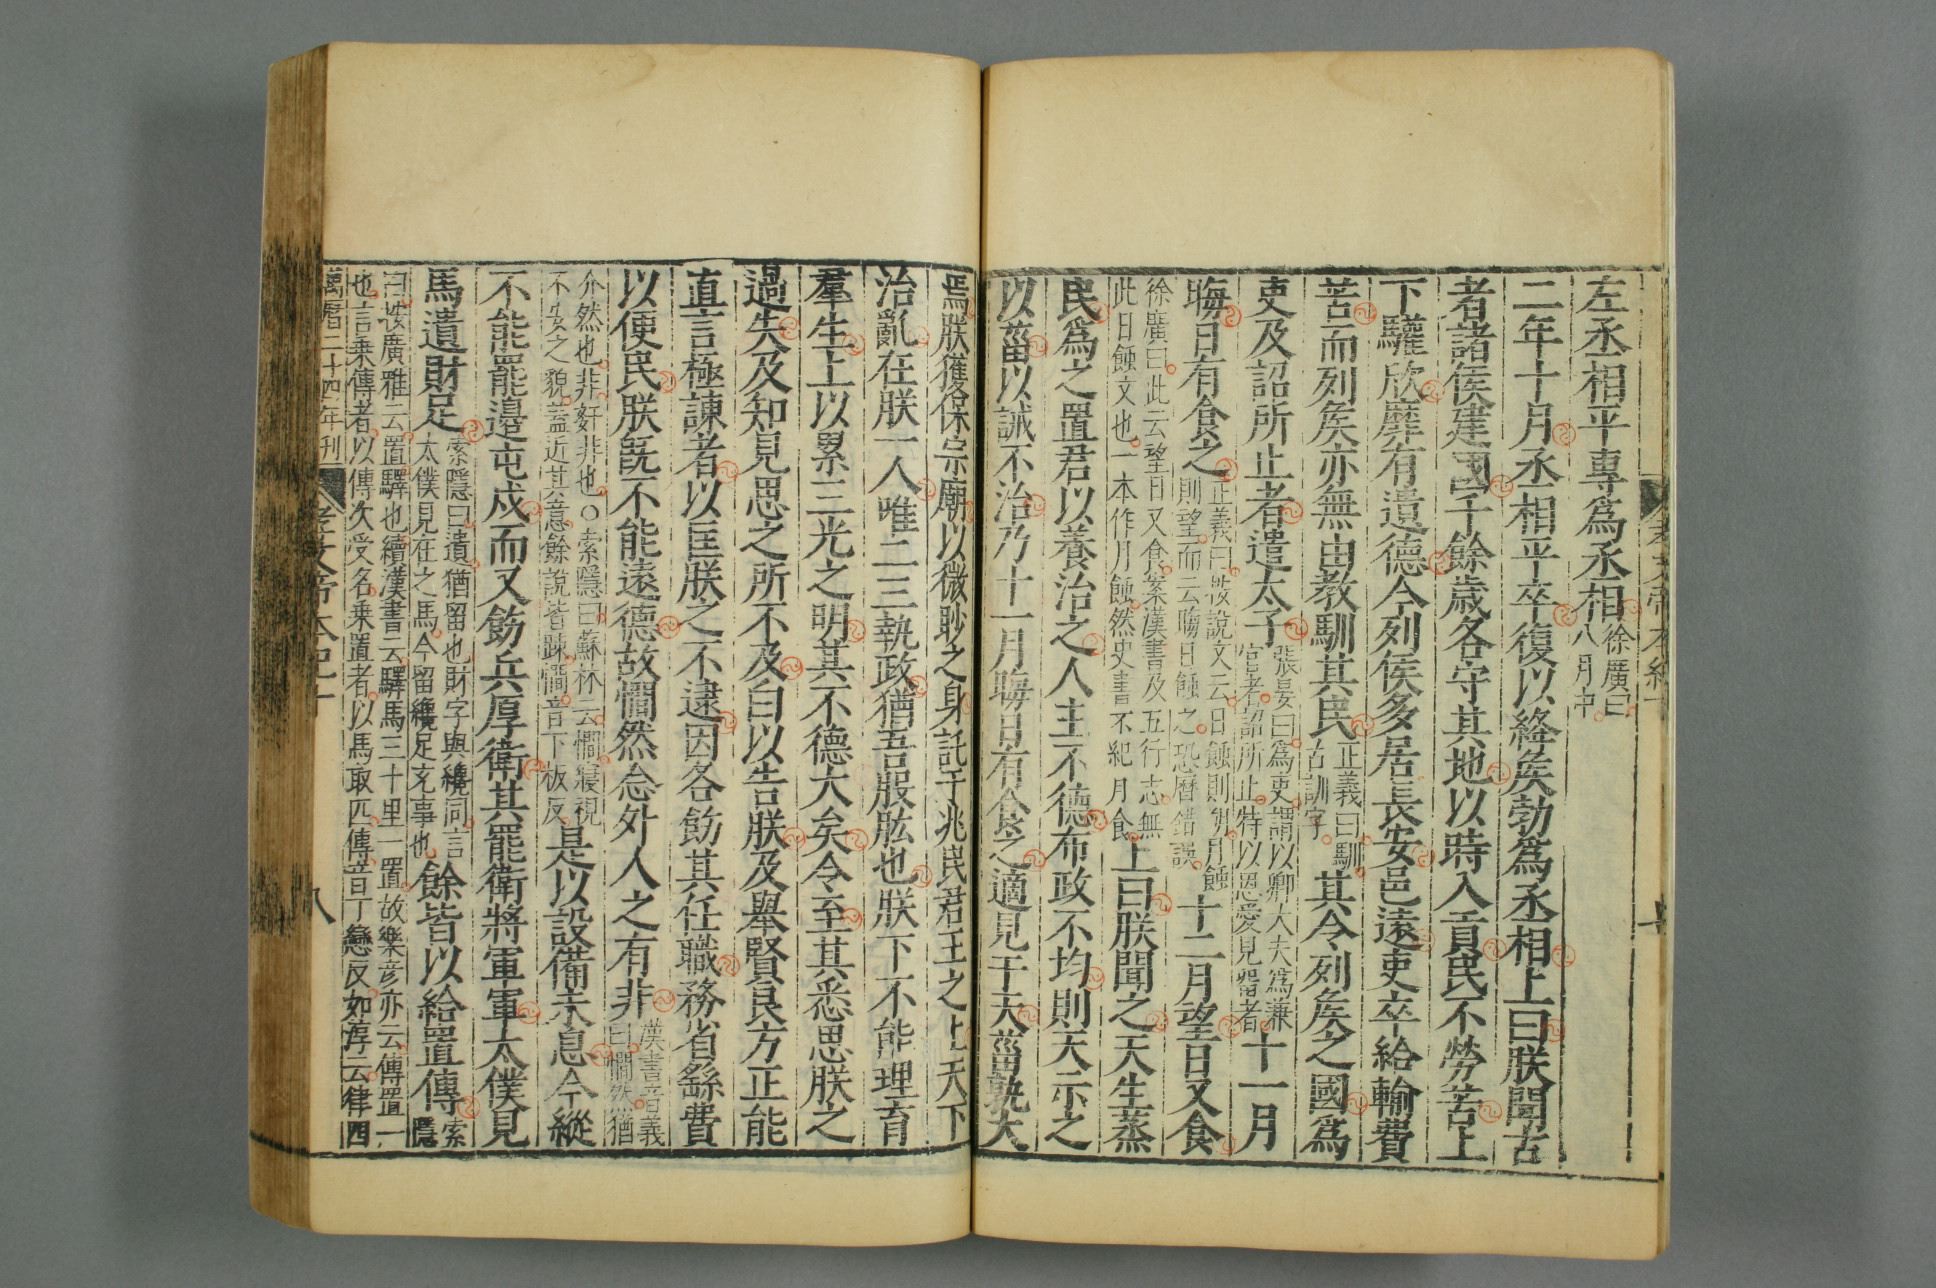 左丞相平專爲丞相徐廣曰八月中
二年十月丞相平卒復以絳矦勃爲丞相上曰朕聞古
者諸侯建國千餘歲各守其地以時入貢民不勞苦上
下驩欣靡有遺德今列侯多居長安邑遠吏卒給輸費
苦而列矦亦無由教馴其民正義曰馴古訓字其令列矦之國爲
吏及詔所止者遣太子張晏曰爲吏謂以卿大夫爲兼官者詔所止特以恩愛見留者十一月
晦日有食之正義曰按說文云日蝕則朔月蝕則望而云晦日蝕之恐曆錯誤十二月望日又食
徐廣曰此云望日又食案漢書及五行志無此日蝕文也一本作月蝕然史書不紀月食上曰朕聞之天生蒸
民爲之置君以養治之人主不德布政不均則天示之
以菑以誡不治乃十一月晦日有食之適見于天菑孰大
焉朕獲保宗廟以微眇之身託于兆民君王之上天下
治亂在朕一人唯二三執政猶吾股肱也朕下不能理育
羣生上以累三光之明其不德大矣令至其悉思朕之
過失及知見思之所不及匄以告朕及舉賢良方正能
直言極諫者以匡朕之不逮因各飭其任職務省繇費
以便民朕旣不能遠德故憪然念外人之有非漢書音義曰憪然猶
介然也非姧非也○索隱曰蘇林云憪寢視不安之貌蓋近其意餘說皆踈憪音下板反是以設備未息今縱
不能罷邊屯戍而又飭兵厚衛其罷衛將軍軍太僕見
馬遺財足索隱曰遺猶留也財字與纔同言太僕見在之馬今留纔足充事也餘皆以給置傳索隱
曰按廣雅云置驛也續漢書云驛馬三十里一置故樂彦亦云傳置一也言乗傳者以傳次受名乗置者以馬取匹傳音丁戀反如淳云律四
萬曆二十四年刊 孝文帝本紀十 八